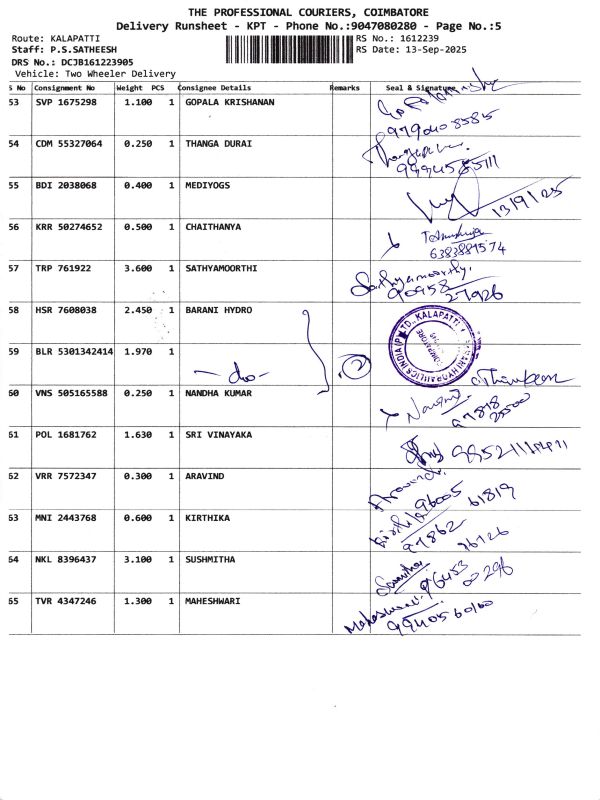 THE PROFESSIONAL COURIERS, COIMBATORE
Delivery Runsheet - KPT - Phone No.:9047080280 - Page No.:5
Route: KALAPATTI
RS No.: 1612239
Staff: P.S.SATHEESH
RS Date: 13-Sep-2025
DRS No.: DCJB161223905
Vehicle: Two Wheeler Delivery
S No Consignment No Weight PCS Consignee Details Remarks Seal & Signature
53 SVP 1675298 1.100 1 GOPALA KRISHANAN
9790408585
54 CDM 55327064 0.250 1 THANGA DURAI
55 BDI 2038068 0.400 1 MEDIYOGS
13/9/25
56 KRR 50274652 0.500 1 CHAITHANYA
6383889574
57 TRP 761922 3.600 1 SATHYAMOORTHI
Sathyamoorthy.
90958
27926
58 HSR 7608038 2.450 1 BARANI HYDRO
59 BLR 5301342414 1.970 1
- do - 2
60 VNS 505165588 0.250 1 NANDHA KUMAR
97878
61 POL 1681762 1.630 1 SRI VINAYAKA
62 VRR 7572347 0.300 1 ARAVIND
Aravind
96005 61819
63 MNI 2443768 0.600 1 KIRTHIKA
97862
64 NKL 8396437 3.100 1 SUSHMITHA
96453
00296
65 TVR 4347246 1.300 1 MAHESHWARI
9940560160